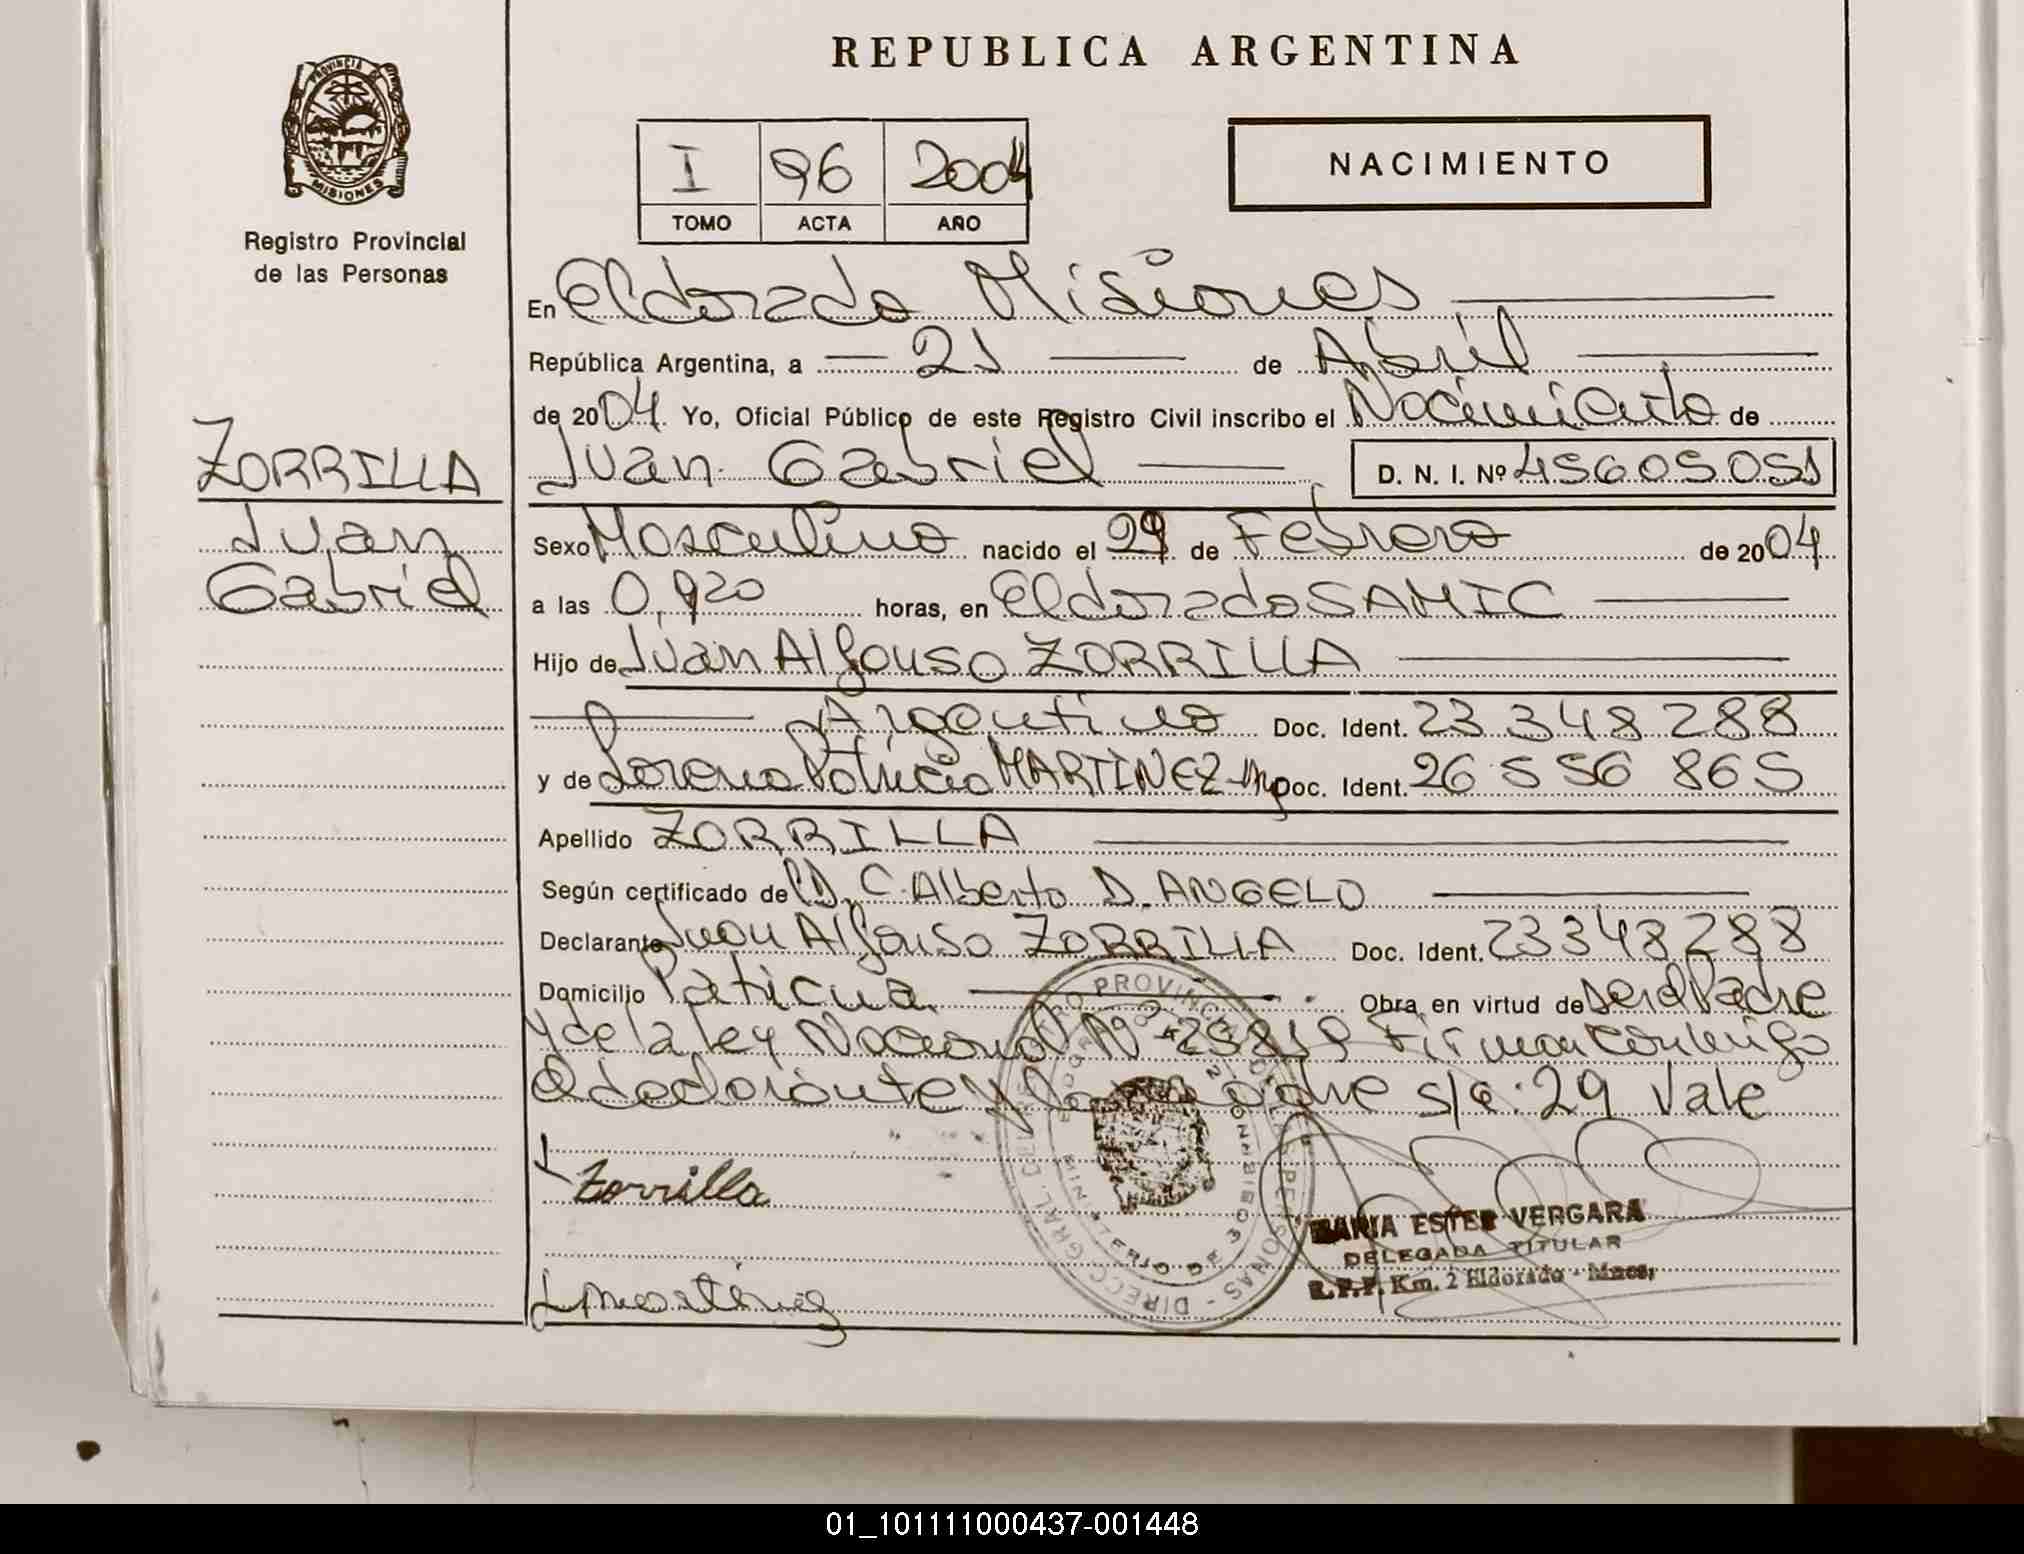 REPUBLICA ARGENTINA
PROVINCIA DE
MISIONES
Registro Provincial
de las Personas
I 96 2004
TOMO ACTA AÑO
NACIMIENTO
En Eldorado Misiones
República Argentina, a 21 de Abril
de 2004 Yo, Oficial Público de este Registro Civil inscribo el Nacimiento de
Juan Gabriel D. N. I. Nº 45605051
ZORRILLA
Juan
Gabriel
Sexo Masculino nacido el 29 de Febrero de 2004
a las 0,920 horas, en Eldorado SAMIC
Hijo de Juan Alfonso ZORRILLA
Argentino Doc. Ident. 23 348 288
y de Lorena Patricia MARTINEZ Arg Doc. Ident. 26 556 865
Apellido ZORRILLA
Según certificado de C. Alberto D. ANGELO
Declarante Juan Alfonso ZORRILLA Doc. Ident. 23348288
Domicilio Paticua Obra en virtud de ser el Padre
y de la ley Nacional Nº Firman conmigo
el declarante y la madre s/e: 29 Vale
Zorrilla
L martinez
MARIA ESTER VERGARA
DELEGADA TITULAR
R.P.P. Km. 2 Eldorado - Mnes.
01_101111000437-001448